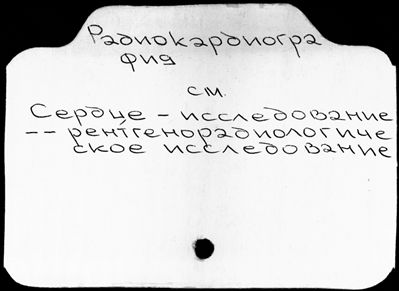 Радиокардиогра
фия
см.
Сердце – исследование
-- рентгенорадиологиче
ское исследование